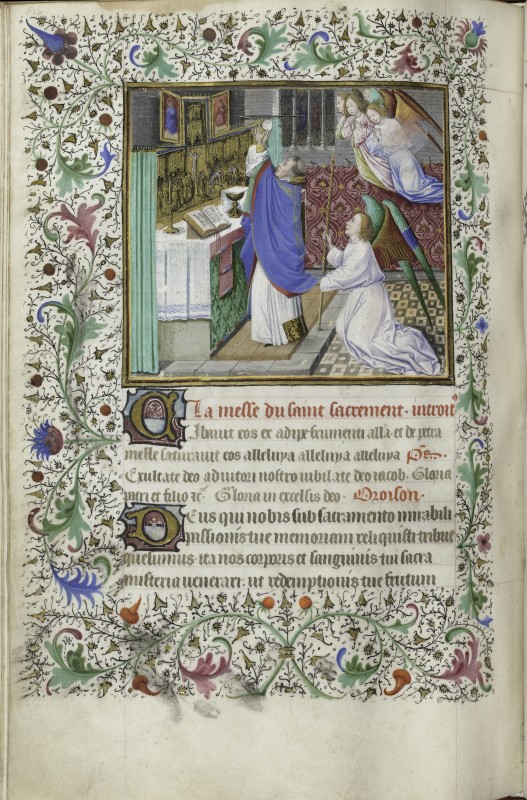 La messe du saint sacrement. introit
Cibavit eos ex adipe frumenti alla. et de petra
melle saturavit eos alleluya alleluya alleluya Ps.
Exultate deo adiutori nostro iubilate deo iacob. Gloria
patri et filio Gloria in excelsis deo. Oroison.
Deus qui nobis sub sacramento mirabili
passionis tue memoriam reliquisti tribue
quesumus. ita nos corporis et sanguinis tui sacra
misteria venerari: ut redemptionis tue fructum